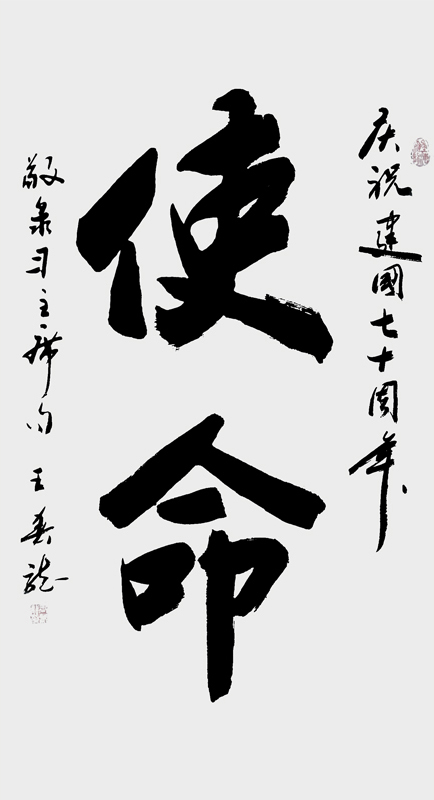 庆祝建國七十周年
使命
敬录习主席句 王春龍